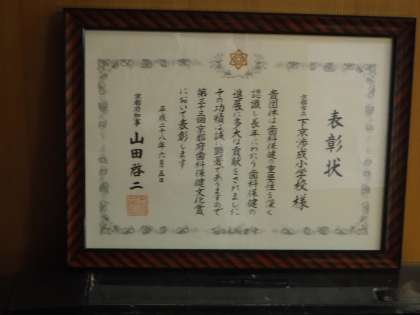 表彰状
京都市立 下京渉成小学校 様
貴団体は歯科保健の重要性を深く
認識し長年にわたり歯科保健の
進展に多大な貢献をされました
その功績は誠に顕著でありますので
第三十三回京都府歯科保健文化賞
において表彰します
平成二十八年六月五日
京都府知事 山田啓二